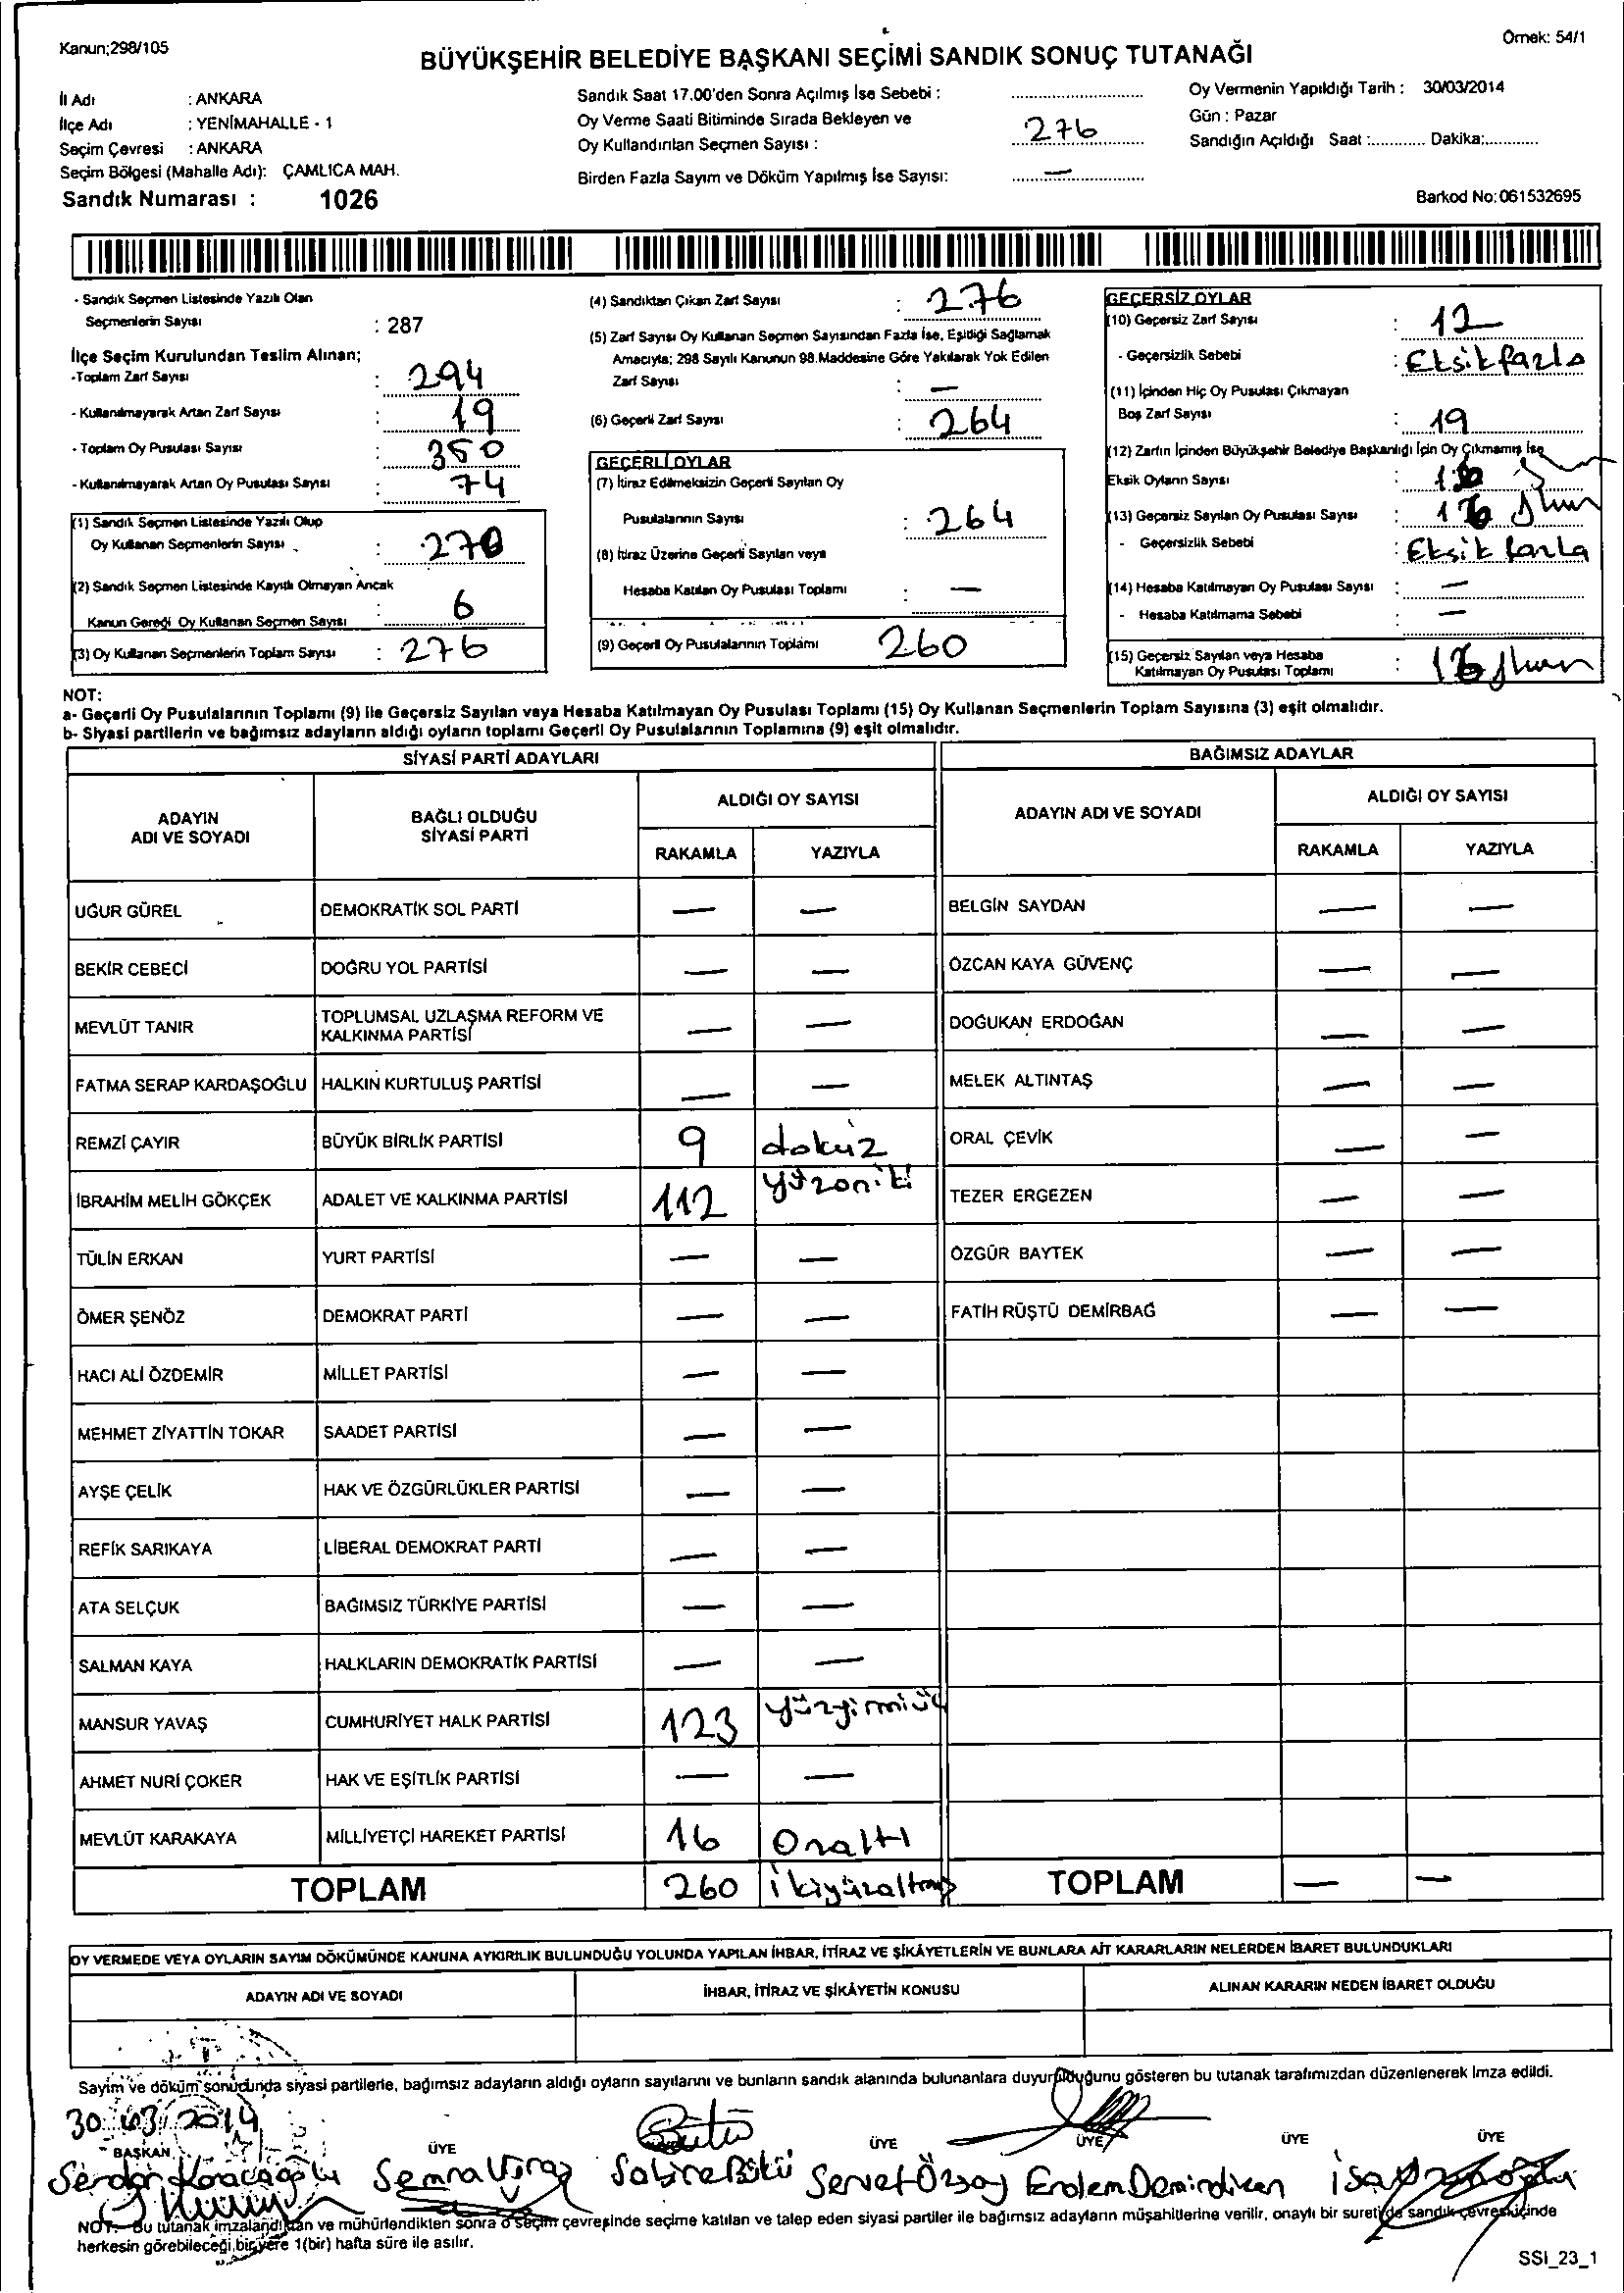 Kanun;298/105
Örnek: 54/1
BÜYÜKŞEHİR BELEDİYE BAŞKANI SEÇİMİ SANDIK SONUÇ TUTANAĞI
İl Adı : ANKARA
İlçe Adı : YENİMAHALLE - 1
Seçim Çevresi : ANKARA
Seçim Bölgesi (Mahalle Adı): ÇAMLICA MAH.
Sandık Numarası : 1026
Sandık Saat 17.00'den Sonra Açılmış İse Sebebi : ..........
Oy Verme Saati Bitiminde Sırada Bekleyen ve
Oy Kullandırılan Seçmen Sayısı : 276
Birden Fazla Sayım ve Döküm Yapılmış İse Sayısı: —
Oy Vermenin Yapıldığı Tarih : 30/03/2014
Gün : Pazar
Sandığın Açıldığı Saat :............ Dakika:............
Barkod No:061532695
- Sandık Seçmen Listesinde Yazılı Olan
Seçmenlerin Sayısı : 287
İlçe Seçim Kurulundan Teslim Alınan;
-Toplam Zarf Sayısı : 294
- Kullanılmayarak Artan Zarf Sayısı : 19
- Toplam Oy Pusulası Sayısı : 350
- Kullanılmayarak Artan Oy Pusulası Sayısı : 74
(1) Sandık Seçmen Listesinde Yazılı Olup
Oy Kullanan Seçmenlerin Sayısı : 270
(2) Sandık Seçmen Listesinde Kayıtlı Olmayan Ancak
Kanun Gereği Oy Kullanan Seçmen Sayısı : 6
(3) Oy Kullanan Seçmenlerin Toplam Sayısı : 276
(4) Sandıktan Çıkan Zarf Sayısı : 276
(5) Zarf Sayısı Oy Kullanan Seçmen Sayısından Fazla İse, Eşitliği Sağlamak
Amacıyla; 298 Sayılı Kanunun 98.Maddesine Göre Yakılarak Yok Edilen
Zarf Sayısı : —
(6) Geçerli Zarf Sayısı : 264
GEÇERLİ OYLAR
(7) İtiraz Edilmeksizin Geçerli Sayılan Oy
Pusulalarının Sayısı : 264
(8) İtiraz Üzerine Geçerli Sayılan veya
Hesaba Katılan Oy Pusulası Toplamı : —
(9) Geçerli Oy Pusulalarının Toplamı 260
GEÇERSİZ OYLAR
(10) Geçersiz Zarf Sayısı : 12
- Geçersizlik Sebebi : Eksik fazla
(11) İçinden Hiç Oy Pusulası Çıkmayan
Boş Zarf Sayısı : 19
(12) Zarfın İçinden Büyükşehir Belediye Başkanlığı İçin Oy Çıkmamış İse
Eksik Oyların Sayısı :
(13) Geçersiz Sayılan Oy Pusulası Sayısı : 16
- Geçersizlik Sebebi : Eksik fazla
(14) Hesaba Katılmayan Oy Pusulası Sayısı : —
- Hesaba Katılmama Sebebi : —
(15) Geçersiz Sayılan veya Hesaba
Katılmayan Oy Pusulası Toplamı : 16
NOT:
a- Geçerli Oy Pusulalarının Toplamı (9) ile Geçersiz Sayılan veya Hesaba Katılmayan Oy Pusulası Toplamı (15) Oy Kullanan Seçmenlerin Toplam Sayısına (3) eşit olmalıdır.
b- Siyasi partilerin ve bağımsız adayların aldığı oyların toplamı Geçerli Oy Pusulalarının Toplamına (9) eşit olmalıdır.
SİYASİ PARTİ ADAYLARI
BAĞIMSIZ ADAYLAR
ADAYIN
ADI VE SOYADI
BAĞLI OLDUĞU
SİYASİ PARTİ
ALDIĞI OY SAYISI
RAKAMLA YAZIYLA
ADAYIN ADI VE SOYADI
ALDIĞI OY SAYISI
RAKAMLA YAZIYLA
UĞUR GÜREL DEMOKRATİK SOL PARTİ — — BELGİN SAYDAN — —
BEKİR CEBECİ DOĞRU YOL PARTİSİ — — ÖZCAN KAYA GÜVENÇ — —
MEVLÜT TANIR TOPLUMSAL UZLAŞMA REFORM VE
KALKINMA PARTİSİ — — DOĞUKAN ERDOĞAN — —
FATMA SERAP KARDAŞOĞLU HALKIN KURTULUŞ PARTİSİ — — MELEK ALTINTAŞ — —
REMZİ ÇAYIR BÜYÜK BİRLİK PARTİSİ 9 dokuz ORAL ÇEVİK — —
İBRAHİM MELİH GÖKÇEK ADALET VE KALKINMA PARTİSİ 112 yüzoniki TEZER ERGEZEN — —
TÜLİN ERKAN YURT PARTİSİ — — ÖZGÜR BAYTEK — —
ÖMER ŞENÖZ DEMOKRAT PARTİ — — FATİH RÜŞTÜ DEMİRBAĞ — —
HACI ALİ ÖZDEMİR MİLLET PARTİSİ — —
MEHMET ZİYATTİN TOKAR SAADET PARTİSİ — —
AYŞE ÇELİK HAK VE ÖZGÜRLÜKLER PARTİSİ — —
REFİK SARIKAYA LİBERAL DEMOKRAT PARTİ — —
ATA SELÇUK BAĞIMSIZ TÜRKİYE PARTİSİ — —
SALMAN KAYA HALKLARIN DEMOKRATİK PARTİSİ — —
MANSUR YAVAŞ CUMHURİYET HALK PARTİSİ 123 yüzyirmiüç
AHMET NURİ ÇOKER HAK VE EŞİTLİK PARTİSİ — —
MEVLÜT KARAKAYA MİLLİYETÇİ HAREKET PARTİSİ 16 Onaltı
TOPLAM 260 ikiyüzaltmış TOPLAM — —
OY VERMEDE VEYA OYLARIN SAYIM DÖKÜMÜNDE KANUNA AYKIRILIK BULUNDUĞU YOLUNDA YAPILAN İHBAR, İTİRAZ VE ŞİKÂYETLERİN VE BUNLARA AİT KARARLARIN NELERDEN İBARET BULUNDUKLARI
ADAYIN ADI VE SOYADI İHBAR, İTİRAZ VE ŞİKÂYETİN KONUSU ALINAN KARARIN NEDEN İBARET OLDUĞU
Sayım ve döküm sonucunda siyasi partilerle, bağımsız adayların aldığı oyların sayılarını ve bunların sandık alanında bulunanlara duyurulduğunu gösteren bu tutanak tarafımızdan düzenlenerek imza edildi.
30/03/2014
BAŞKAN ÜYE ÜYE ÜYE ÜYE ÜYE
Serdar Karacaoğlu Semra Vuraz Sabire Bükü Servet Özsoy Erdem Demirdizen İsa
NOT: Bu tutanak imzalandıktan ve mühürlendikten sonra o seçim çevresinde seçime katılan ve talep eden siyasi partiler ile bağımsız adayların müşahitlerine verilir, onaylı bir sureti de sandık çevresi içinde
herkesin görebileceği bir yere 1(bir) hafta süre ile asılır.
SSI_23_1